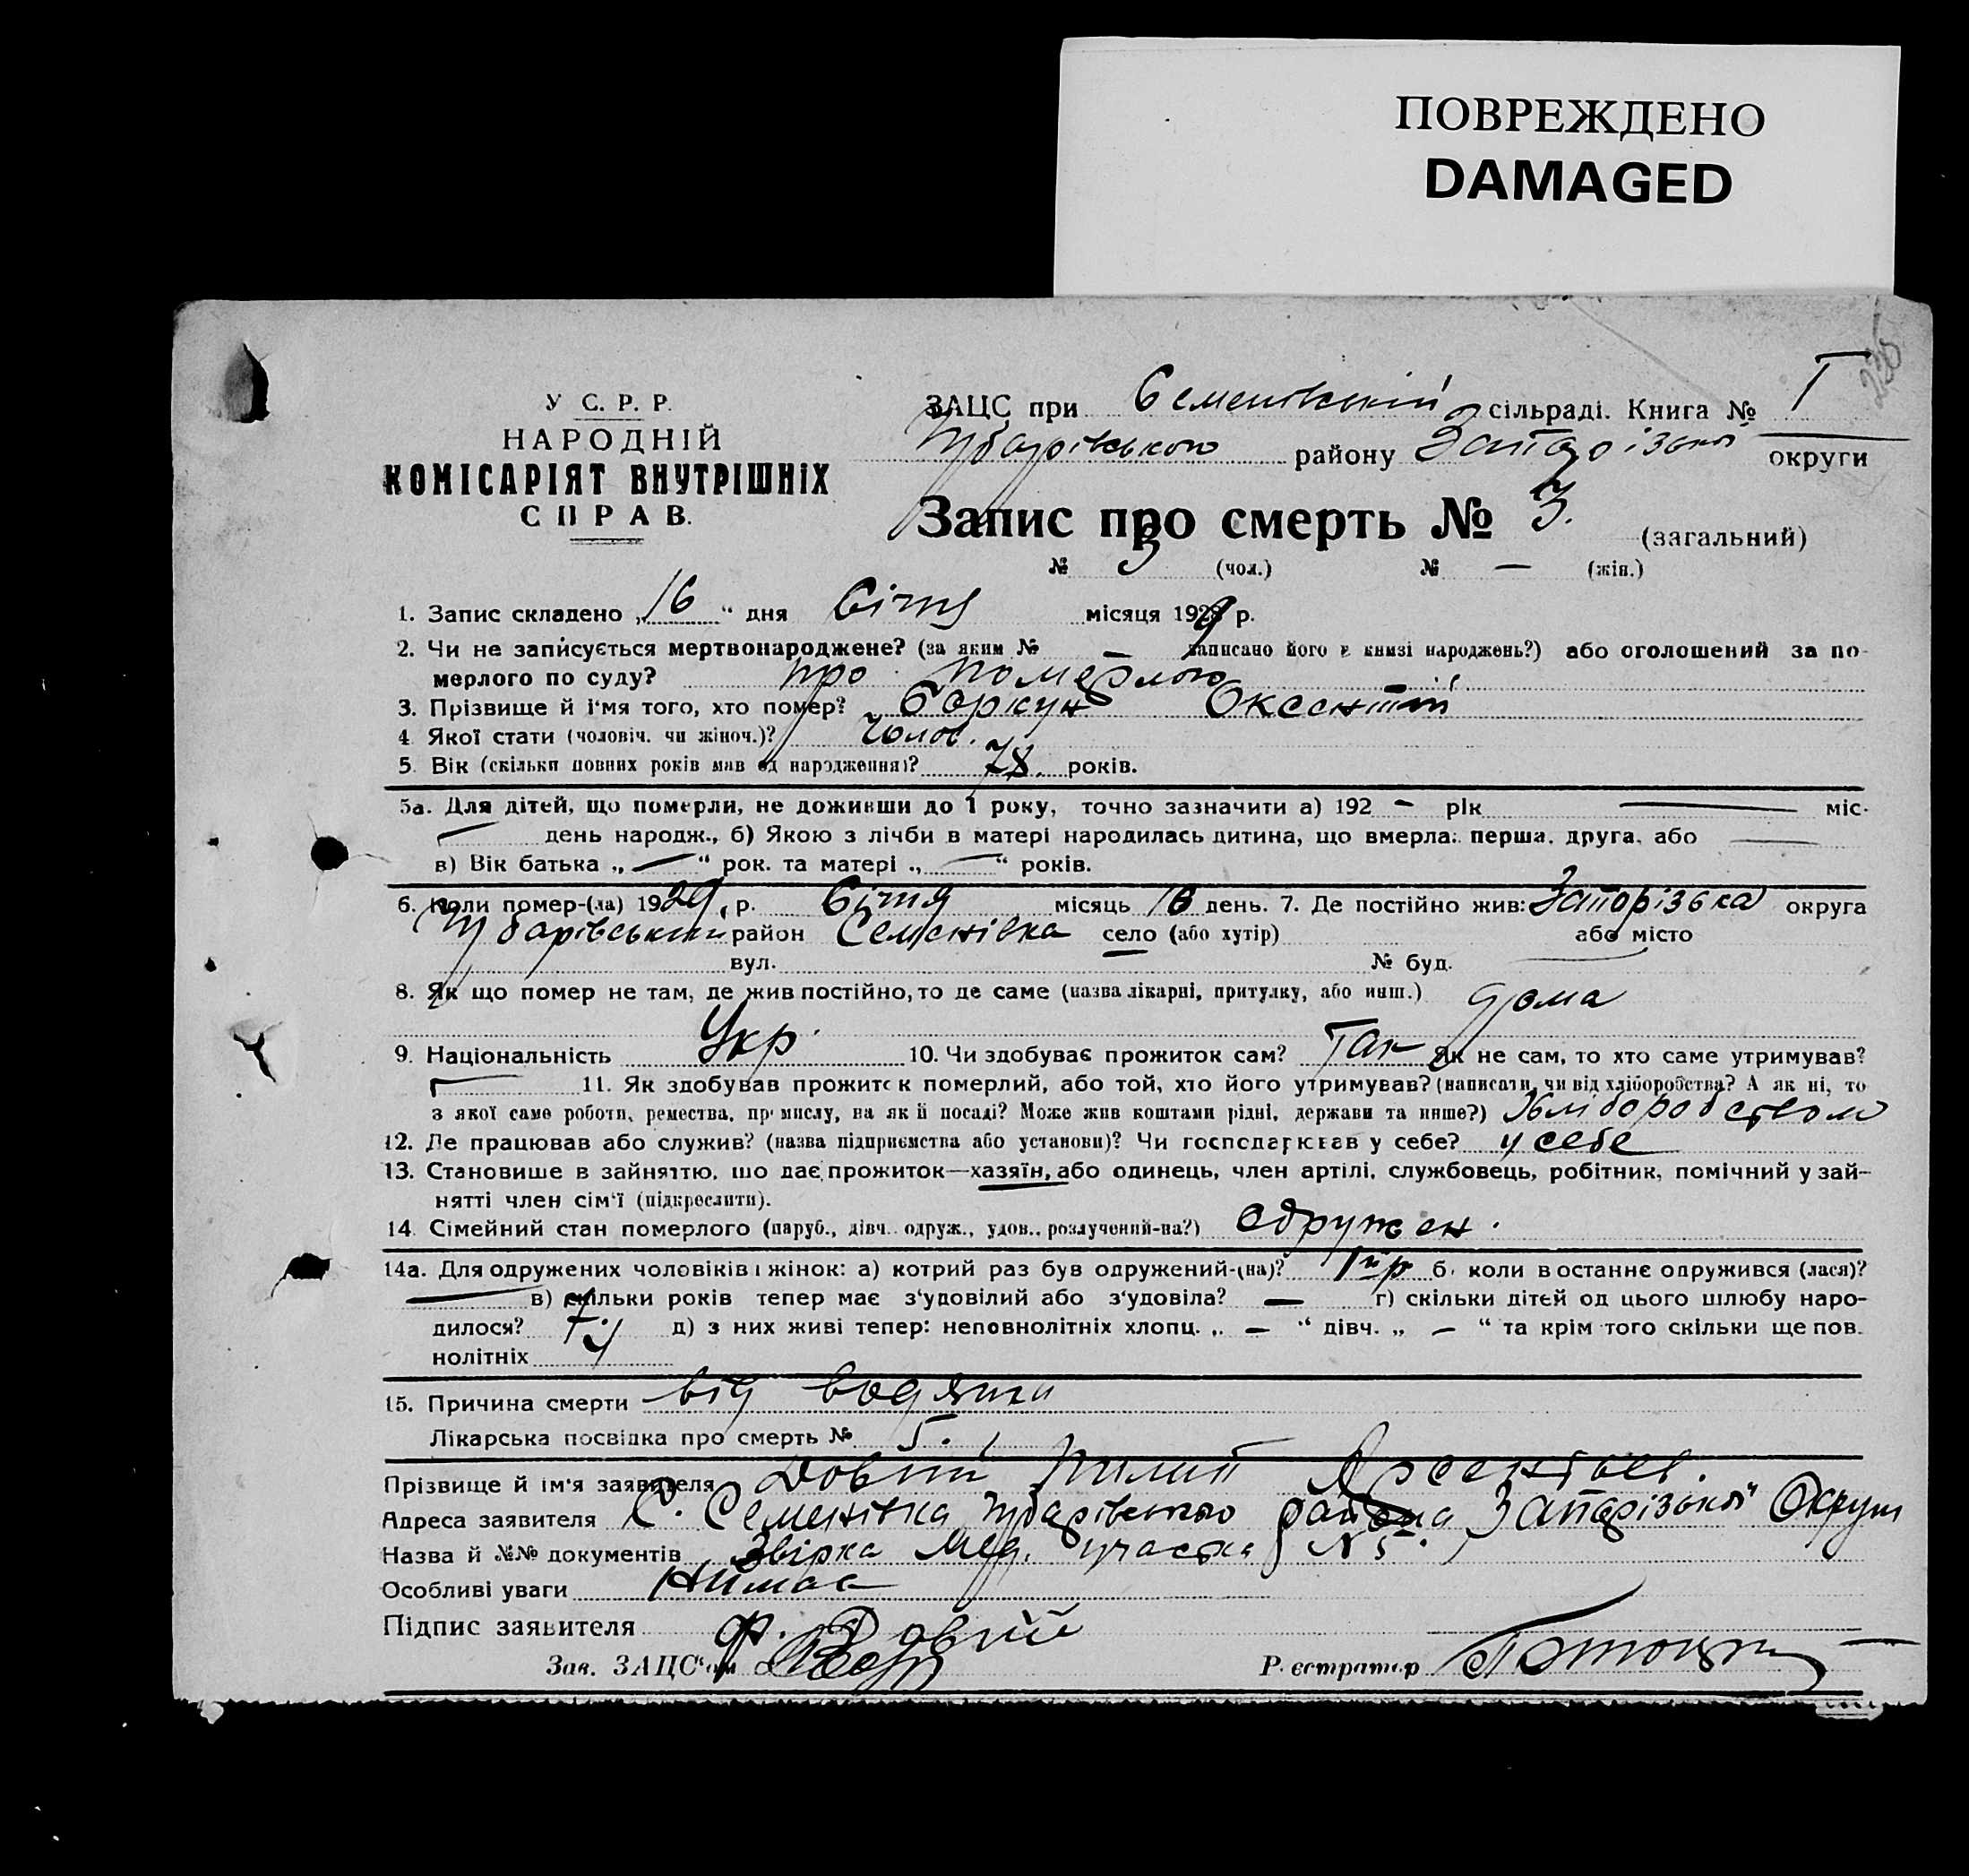 ПОВРЕЖДЕНО
DAMAGED
У С. Р. Р.
НАРОДНІЙ
КОМІСАРІЯТ ВНУТРІШНІХ
СПРАВ.
ЗАЦС при Семенівській сільраді. Книга № I
району Запорізької округи
Запис про смерть № 3. (загальний)
№ 3 (чол.) № — (жін.)
1. Запис складено „16“ дня Січня місяця 1929 р.
2. Чи не записується мертвонароджене? (за яким № — записано його в книзі народжень?) або оголошений за по-
мерлого по суду? про померлого
3. Прізвище й і'мя того, хто помер? Боркун Оксентій
4. Якої стати (чоловіч. чи жіноч.)? Чолов.
5. Вік (скільки повних років мав од народження)? 78. років.
5а. Для дітей, що померли, не доживши до 1 року, точно зазначити а) 192 — рік — міс.
— день народж., б) Якою з лічби в матері народилась дитина, що вмерла: перша, друга, або —
в) Вік батька „—“ рок. та матері „—“ років.
6. Коли помер-(ла) 1929, р. Січня місяць 16 день. 7. Де постійно жив: Запорізька округа
район Семенівка село (або хутір) або місто —
вул. № буд.
8. Як що помер не там, де жив постійно, то де саме (назва лікарні, притулку, або инш.) дома
9. Національність Укр. 10. Чи здобуває прожиток сам? Так Як не сам, то хто саме утримував?
— 11. Як здобував прожиток померлий, або той, хто його утримував? (написати, чи від хліборобства? А як ні, то
з якої саме роботи, ремества, промислу, на якій посаді? Може жив коштами рідні, держави та инше?) Хліборобством
12. Де працював або служив? (назва підприємства або установи)? Чи господарював у себе? у себе
13. Становище в зайняттю, що дає прожиток—хазяїн, або одинець, член артілі, службовець, робітник, помічний у зай-
нятті член сім'ї (підкреслити).
14. Сімейний стан померлого (паруб., дівч., одруж., удов., розлучений-на?) одружен.
14а. Для одружених чоловіків і жінок: а) котрий раз був одружений-(на)? 1й р. б. коли в останнє одружився (лася)?
— в) скільки років тепер має з'удовілий або з'удовіла? — г) скільки дітей од цього шлюбу наро-
дилося? д) з них живі тепер: неповнолітніх хлопц. „ — “ дівч. „ — “ та крім того скільки ще пов.
нолітніх
15. Причина смерти від водянки
Лікарська посвідка про смерть № 5.
Прізвище й ім'я заявителя Довгий Пилип
Адреса заявителя С. Семенівка района Запорізької Округи
Назва й №№ документів Мед. участка № 5.
Особливі уваги Німає
Підпис заявителя Ф. Довгий
Зав. ЗАЦС'ом
Реєстратор